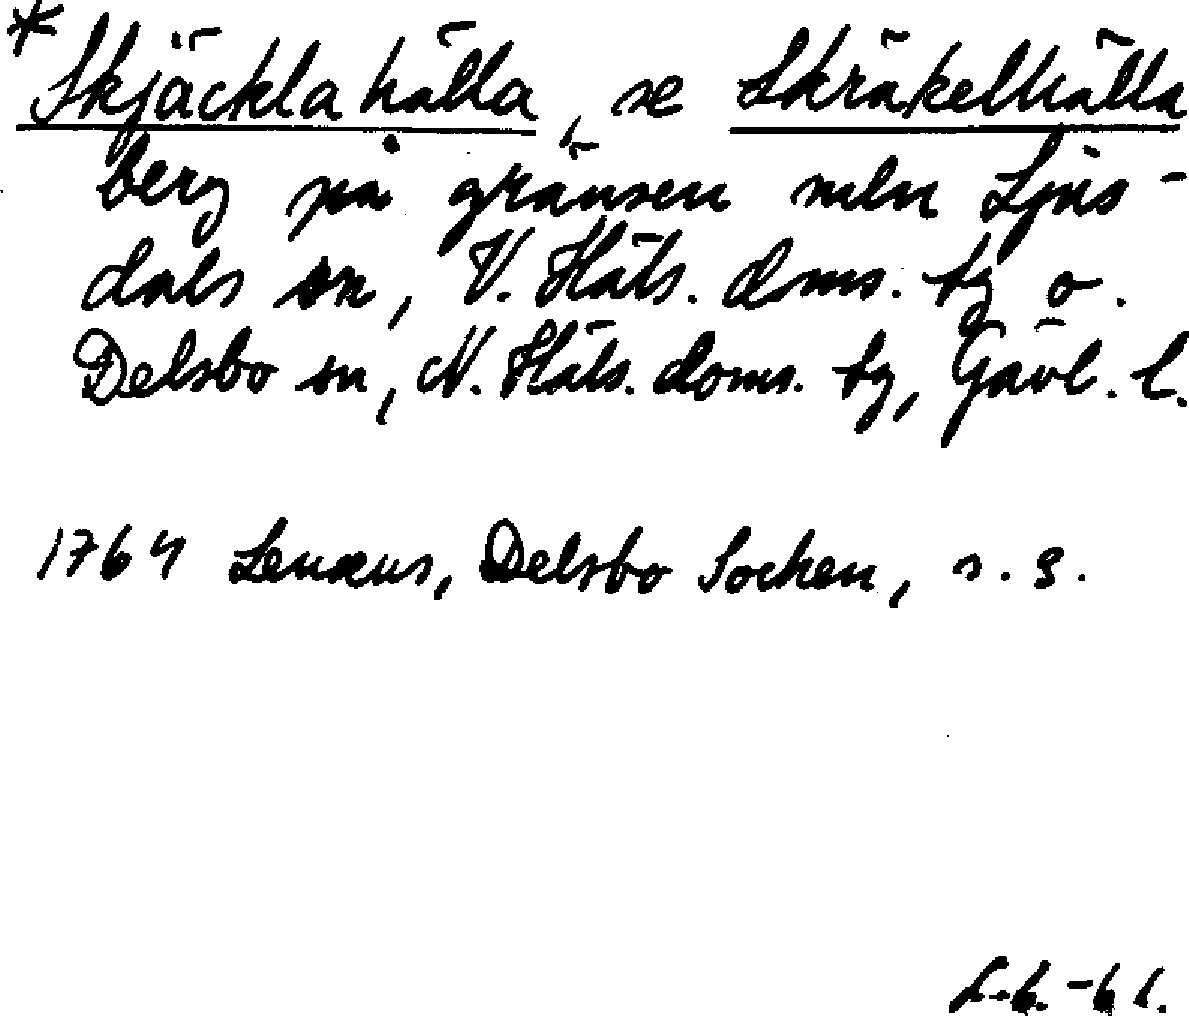 * Skjäckla hälla, se Skräkelhälla
berg på gränsen mln Ljus-
dals sn, V. Häls. doms. tg o.
Delsbo sn, N. Häls. doms. tg, Gävl. l.
1764 Lenæus, Delsbo Socken, s. 3.
L.b. -61.